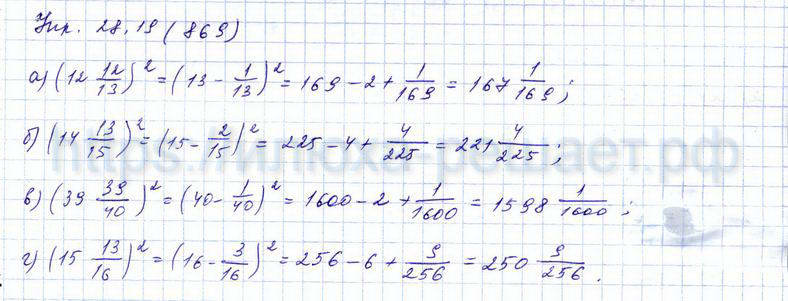 Упр. 28.19 (869)
а) (12 12/13)² = (13 - 1/13)² = 169 - 2 + 1/169 = 167 1/169;
б) (14 13/15)² = (15 - 2/15)² = 225 - 4 + 4/225 = 221 4/225;
в) (39 39/40)² = (40 - 1/40)² = 1600 - 2 + 1/1600 = 1598 1/1600;
г) (15 13/16)² = (16 - 3/16)² = 256 - 6 + 9/256 = 250 9/256.